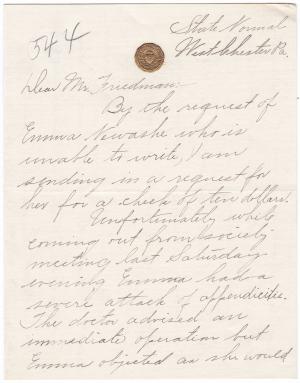 544
State Normal
West Chester Pa.
Dear Mr. Friedman:-
By the request of
Emma Newashe who is
unable to write, I am
sending in a request for
her for a check of ten dollars.
Unfortunately while
coming out from society
meeting last Saturday
evening Emma had a
severe attack of appendicitis.
The doctor advised an
immediate operation but
Emma objected as she would